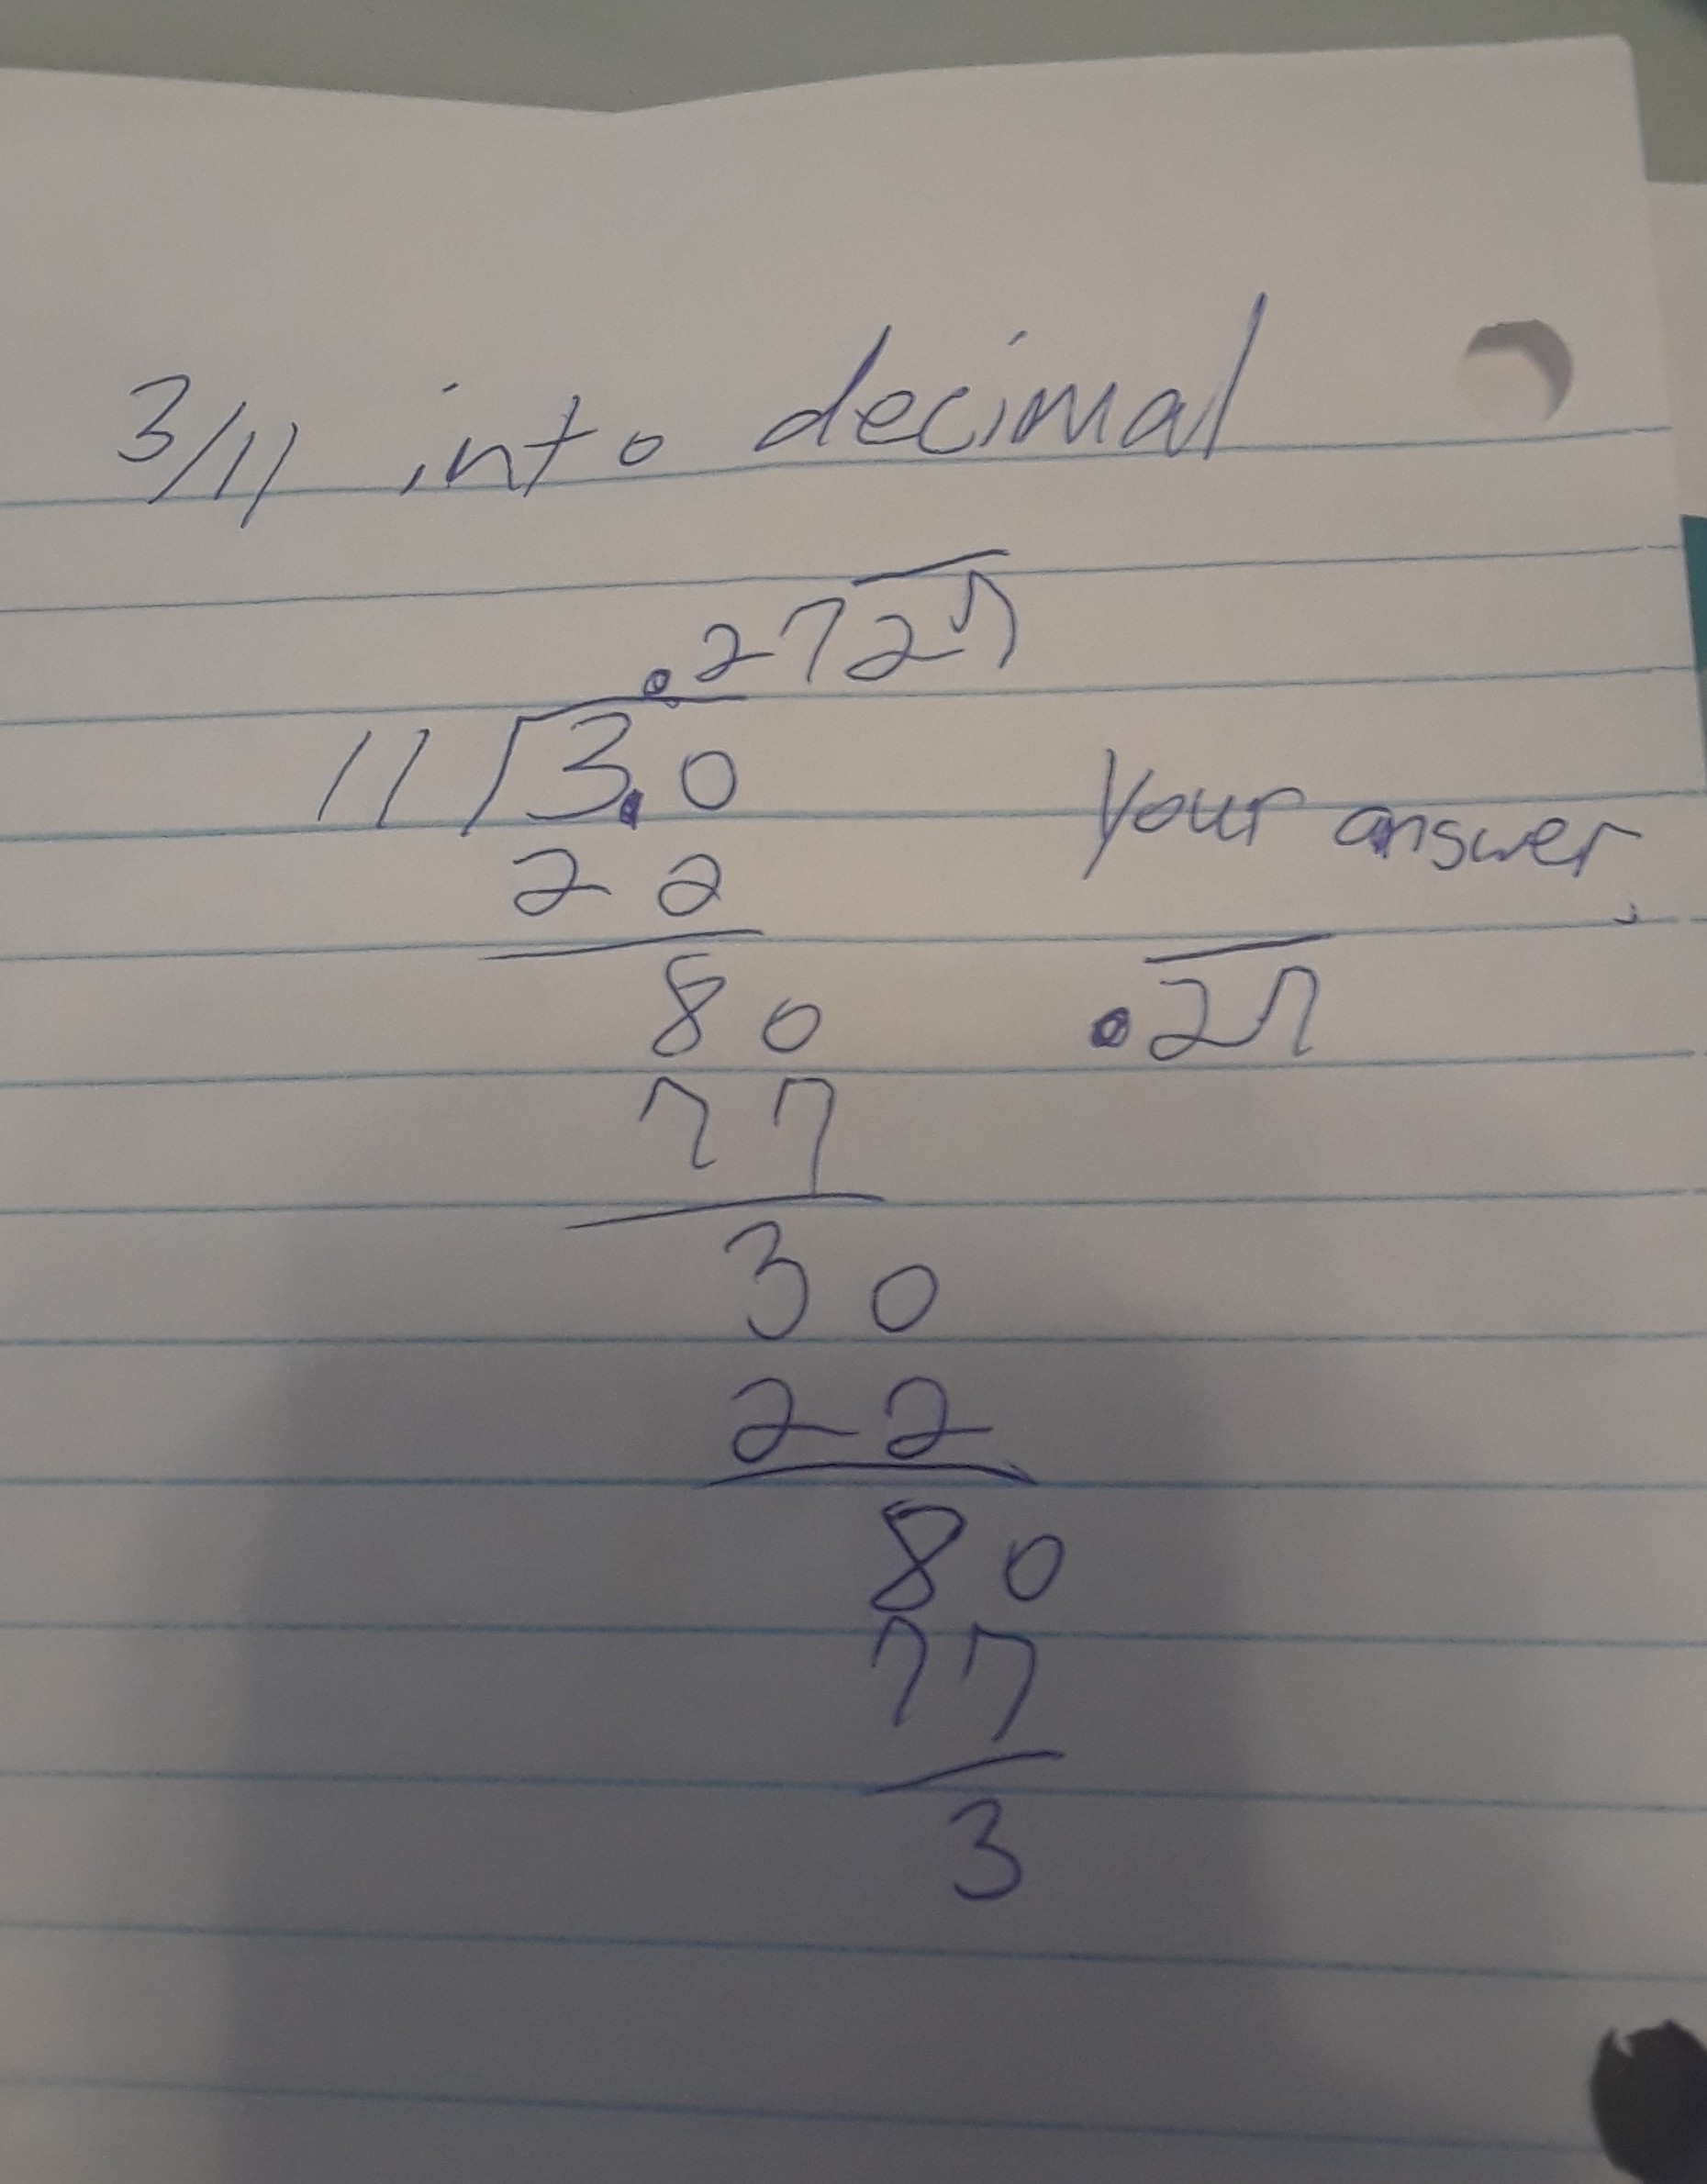 3/11 into decimal
.272̅7̅
11 ⟌3.0
22
80
77
30
22
80
77
3
Your answer
.2̅7̅